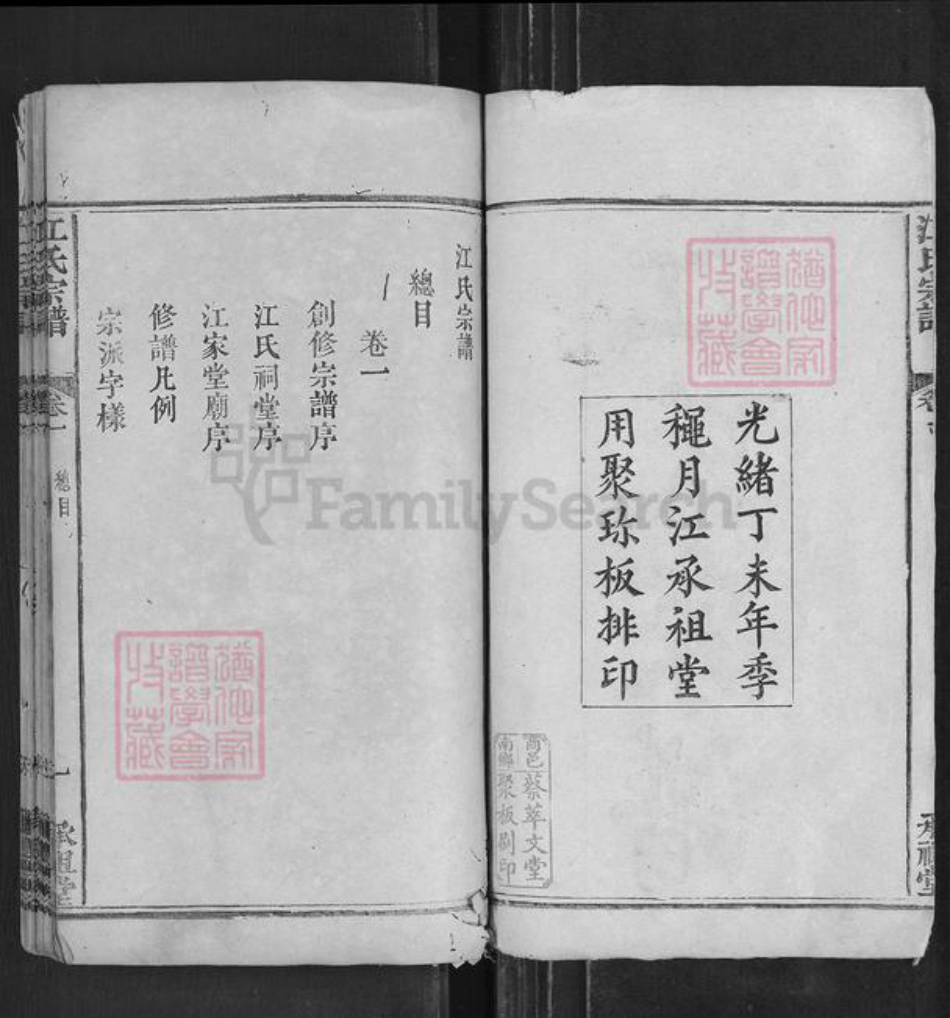 光緒丁未年季
穐月江承祖堂
用聚珎板排印
商邑
南鄉
蔡萃文堂
聚板刷印
猶他家
譜學會
攷藏
江氏宗譜
承祖堂
江氏宗譜
總目
卷一
創修宗譜序
江氏祠堂序
江家堂廟序
修譜凡例
宗派字樣
江氏宗譜
卷一
總目
一
承祖堂
猶他家
譜學會
攷藏
FamilySearch